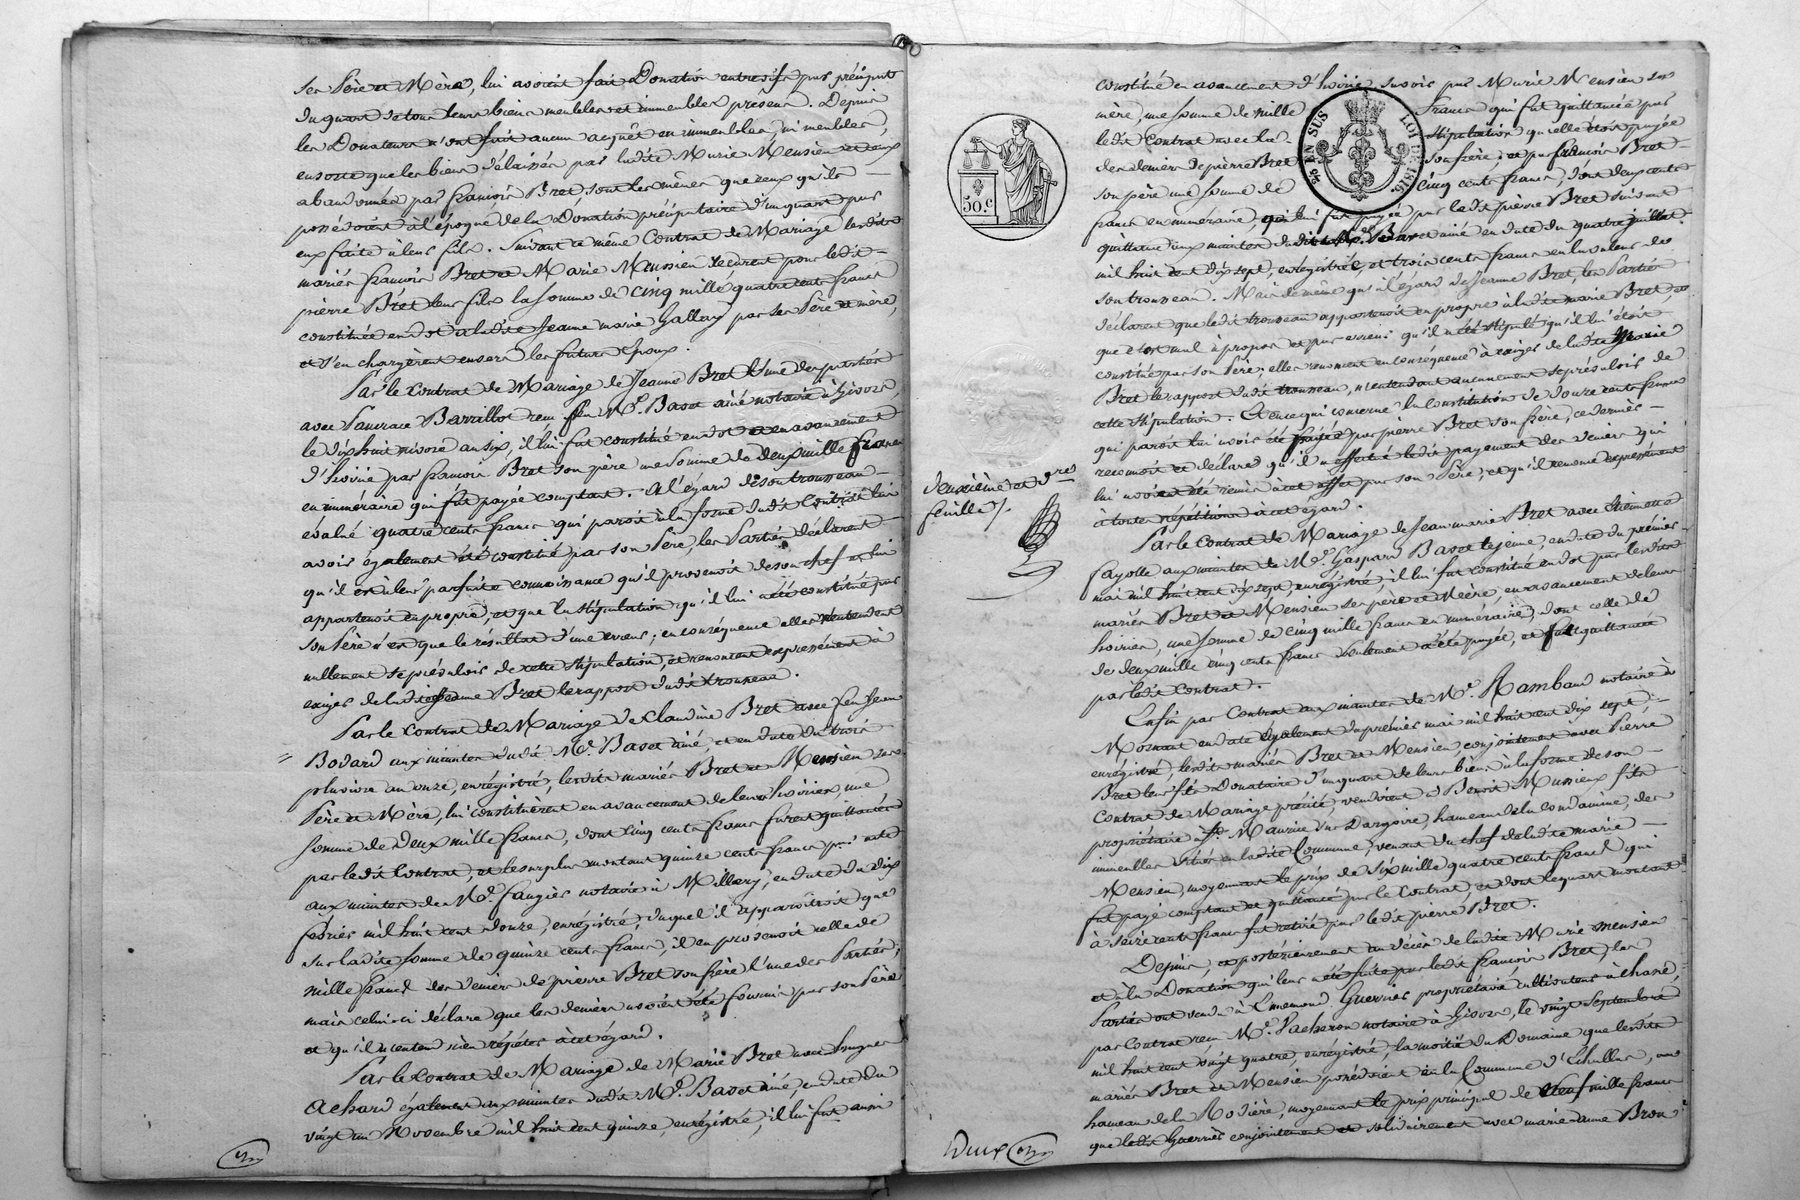 ses Père et Mère, lui avoient fait Donation entrevifs par préciput
du quart de tous leurs biens meubles et immeubles présens. Depuis
les Donateurs n'ont fait aucun acquêt en immeubles, ni meubles,
ensorte que les biens délaissés par ladite Marie Mensien et ceux
abandonnés par françois Bret, sont les mêmes que ceux qu'ils
possédoient à l'époque de la Donation préciputaire d'un quart par
eux faite à leur fils. Suivant ce même Contrat de Mariage lesdits
mariés françois Bret et Marie Mensien reçurent pour ledit
pierre Bret leur fils la somme de cinq mille quatre cents francs
constituée en dot à ladite Jeanne marie Gallery par ses Père et mère,
et s'en chargèrent envers les futurs Epoux.
Par le Contrat de Mariage de Jeanne Bret l'une des parties
avec Pancrace Barrillot reçu feu Me. Basset ainé notaire à Givors,
le dixhuit nivose an six, il lui fut constitué en dot et en avancement
d'hoirie par françois Bret son père une somme de deux mille francs
en numéraire qui fut payée comptant. A l'égard de son trousseau
évalué quatre cents francs qui paroit à la forme dudit Contrat lui
avoir également été constitué par son Père, les Parties déclarent
qu'il est à leur parfaite connoissance qu'il provenoit de son chef et lui
appartenoit en propre, et que la stipulation qu'il lui a été constitué par
son Père n'est que le résultat d'une erreur; en conséquence elles n'entendent
nullement se prévaloir de cette stipulation, et renoncent expressément à
exiger de ladite Jeanne Bret le rapport dudit trousseau.
Par le Contrat de Mariage de Claudine Bret avec feu Jean
Bodard aux minutes dudit Me. Basset ainé, et en date du trois
pluviose an onze, enregistré, lesdits mariés Bret et Mensien ses
Père et Mère, lui constituèrent en avancement de leurs hoiries, une
somme de Deux mille francs, dont cinq cents francs furent quittancés
par ledit Contrat, et le surplus montant quinze cents francs par acte
aux minutes de Me. faugier notaire à Millery, en date du dix
février mil huit cent douze, enregistré, duquel il apparoitroit que
sur ladite somme de quinze cents francs, il en provenoit celle de
mille francs des deniers de pierre Bret son frère l'une des Parties;
mais celui-ci déclare que les deniers avoient été fournis par son Père
et qu'il n'entend rien répéter à cet égard.
Par le Contrat de Mariage de Marie Bret avec hugues
Achard également aux minutes dudit Me. Basset ainé, en date du
vingt un Novembre mil huit cent quinze, enregistré, il lui fut aussi
constitué en avancement d'hoirie savoir par Marie Mensien sa
mère, une somme de mille francs qui fut quittancée par
ledit Contrat avec la stipulation qu'elle étoit payée
des deniers de pierre Bret son frère; et par françois Bret
son père une somme de cinq cents francs, dont deux cents
francs en numéraire, qui lui fut payée par ledit pierre Bret suivant
quittance aux minutes dudit Me. Basset ainé en date du quatre juillet
mil huit cent dix sept, enregistrée, et trois cents francs en la valeur de
son trousseau. Mais de même qu'à l'égard de Jeanne Bret, les Parties
déclarent que ledit trousseau appartenoit en propre à ladite marie Bret, et
que c'est mal à propos et par erreur qu'il a été stipulé qu'il lui étoit
constitué par son Père; elles renoncent en conséquence à exiger de ladite Marie
Bret le rapport dudit trousseau, n'entendant aucunement se prévaloir de
cette stipulation. Et en ce qui concerne la constitution de douze cents francs
qui paroit lui avoir été payée par pierre Bret son frère, ce dernier
reconnoit et déclare qu'il n'a effectué ledit payement des deniers qui
lui avoient été remis à cet effet par son Père; et qu'il renonce expressément
à toute répétition à cet égard.
Par le Contrat de Mariage de Jean marie Bret avec Etiennette
fayolle aux minutes de Me. Gaspard Basset le jeune, en date du premier
mai mil huit cent dix sept, enregistré, il lui fut constitué en dot par lesdits
mariés Bret et Mensien ses père et Mère, en avancement de leurs
hoiries, une somme de cinq mille francs en numéraire, dont celle de
de deux mille cinq cents francs seulement a été payée, et fut quittancée
par ledit Contrat.
Enfin par Contrat aux minutes de Me. Rambaud notaire à
Mornant en date également du premier mai mil huit cent dix sept
enregistré, lesdits mariés Bret et Mensien, conjointement avec Pierre
Bret leur fils Donataire d'un quart de leurs biens à la forme de son
Contrat de Mariage précité, vendirent à Benoit Mussieux fils
propriétaire à St. Maurice sur Dargoire, hameau de la Condamine, des
immeubles situés en ladite Commune, venant du chef de ladite marie
Mensien, moyennant le prix de six mille quatre cents francs qui
fut payé comptant et quittancé par le Contrat, et dont le quart montant
à seize cents francs fut retiré par ledit pierre Bret.
Depuis, et postérieurement au décès de ladite Marie Mensien
et à la Donation qui leur a été faite par ledit françois Bret, les
Parties ont vendu à Ennemond Guerrier propriétaire cultivateur à
par contrat reçu Me. Pacheron notaire à Givors, le vingt Septembre
mil huit cent vingt quatre, enregistré, la moitié du Domaine que lesdits
mariés Bret et Mensien possédoient en la Commune d'Echallas, au
hameau de la Rodière, moyennant le prix principal de Neuf mille francs
que ledit Guerrier conjointement et solidairement avec marie anne Bron
50.c
EN SUS LOI DE 1816
deuxième et dre.
feuille /.
Deux